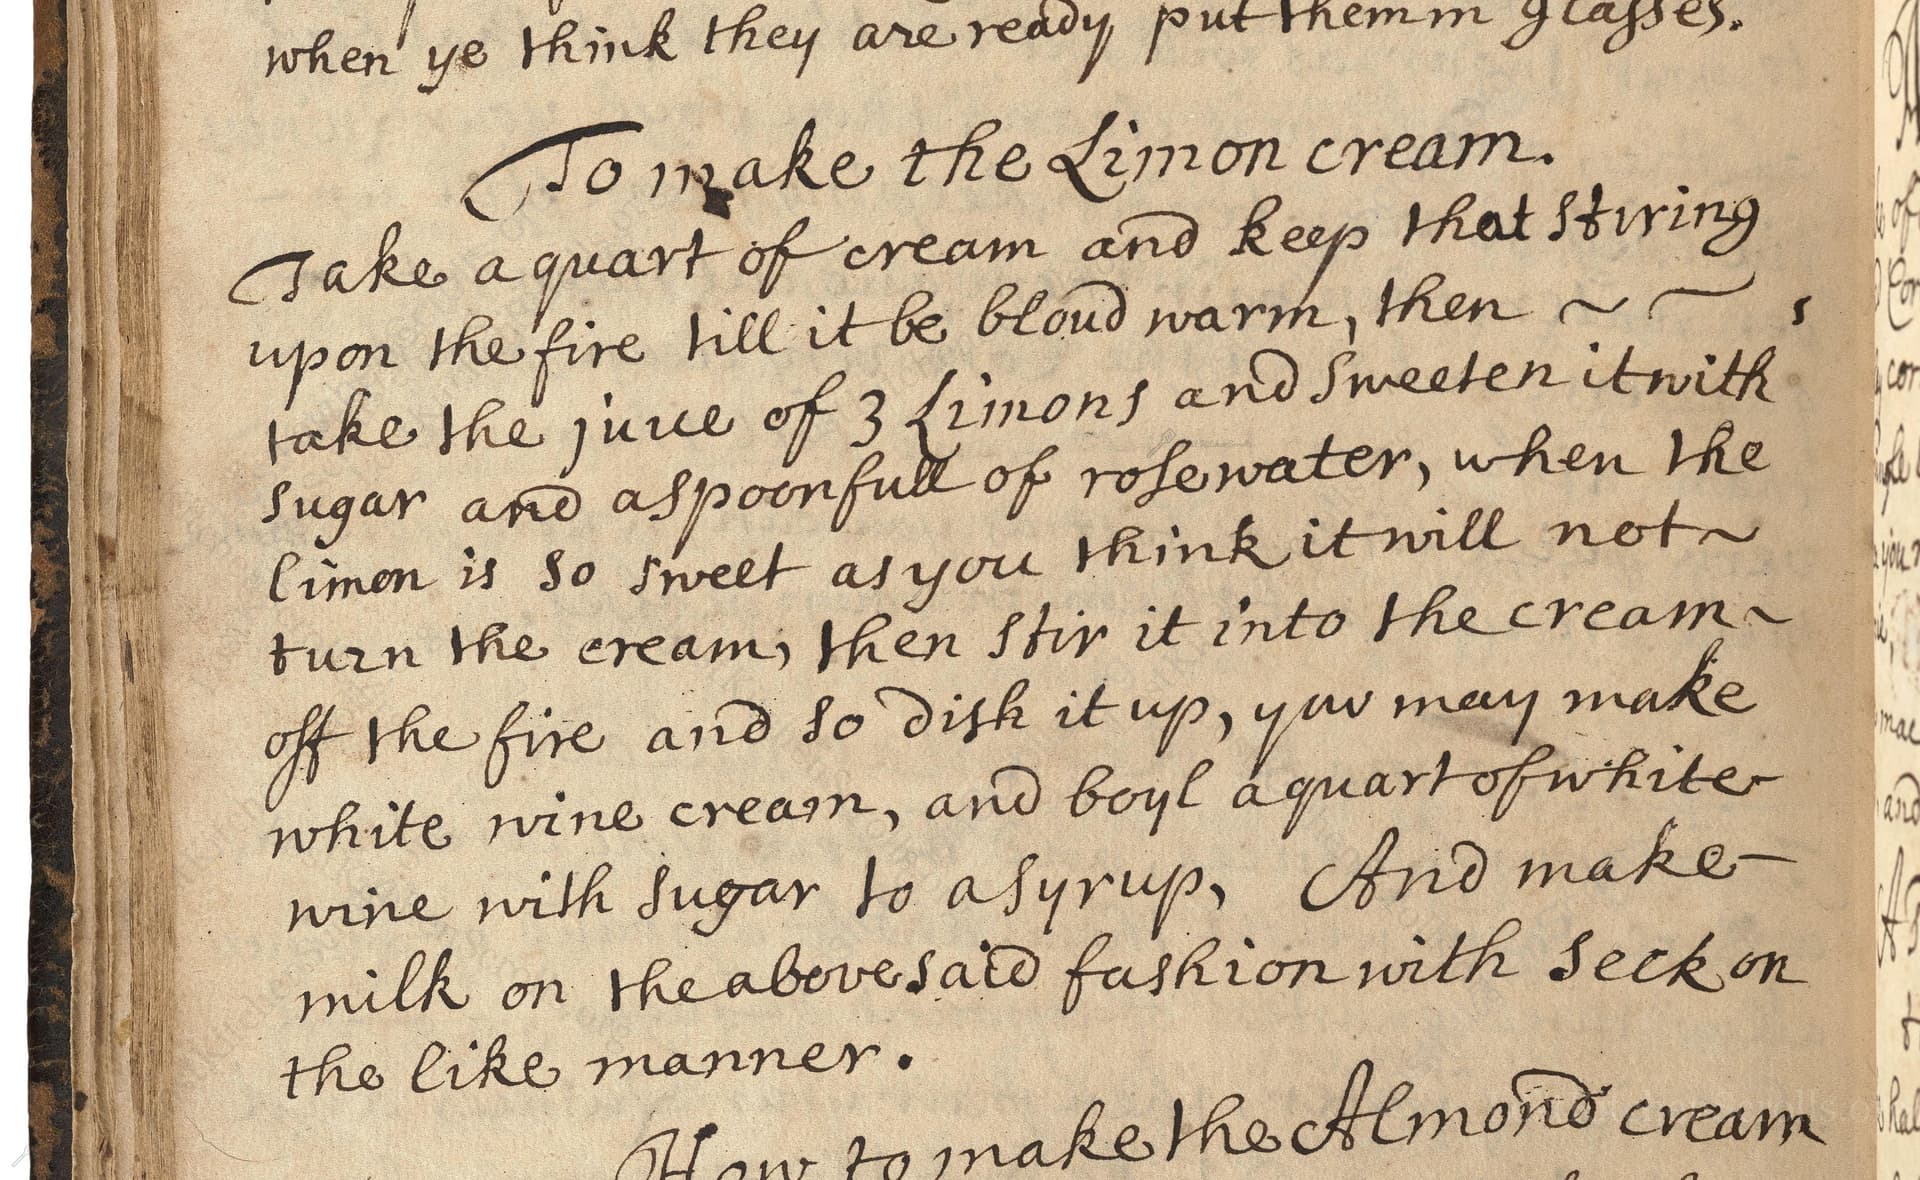 when ye think they are ready put them in glasses.
To make the Limon cream.
Take a quart of cream and keep that stiring
upon the fire till it be bloud warm, then ~ ~
take the juice of 3 Limons and sweeten it with
sugar and a spoonfull of rosewater, when the
limon is so sweet as you think it will not ~
turn the cream, then stir it into the cream ~
off the fire and so dish it up, you may make
white wine cream, and boyl a quart of white
wine with sugar to a syrup, And make
milk on the abovesaid fashion with seck on
the like manner.
How to make the Almond cream